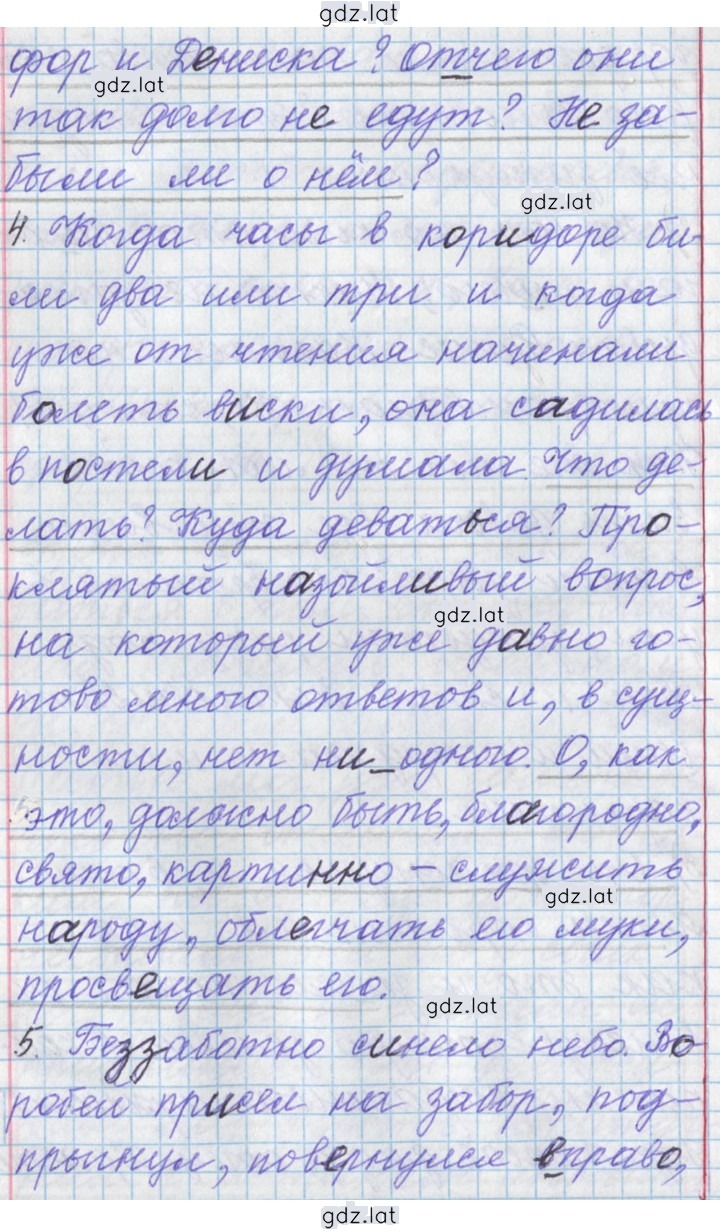 gdz.lat
фор и Дениска? Отчего они
gdz.lat
так долго не едут? Не за-
были ли о нём?
gdz.lat
4. Когда часы в коридоре би-
ли два или три и когда
уже от чтения начинали
болеть виски, она садилась
в постели и думала. Что де-
лать? Куда деваться? Про-
клятый назойливый вопрос,
gdz.lat
на который уже давно го-
тово много ответов и, в сущ-
ности, нет ни одного. О, как
это, должно быть, благородно,
свято, картинно – служить
gdz.lat
народу, облегчать его муки,
просвещать его.
gdz.lat
5. Беззаботно синело небо. Во-
робей присел на забор, под-
прыгнул, повернулся вправо,
gdz.lat